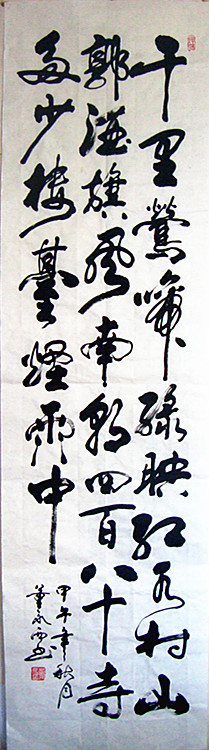 千里鶯啼綠映紅水村山
郭酒旗風南朝四百八十寺
多少樓臺煙雨中
甲午年秋月
董书